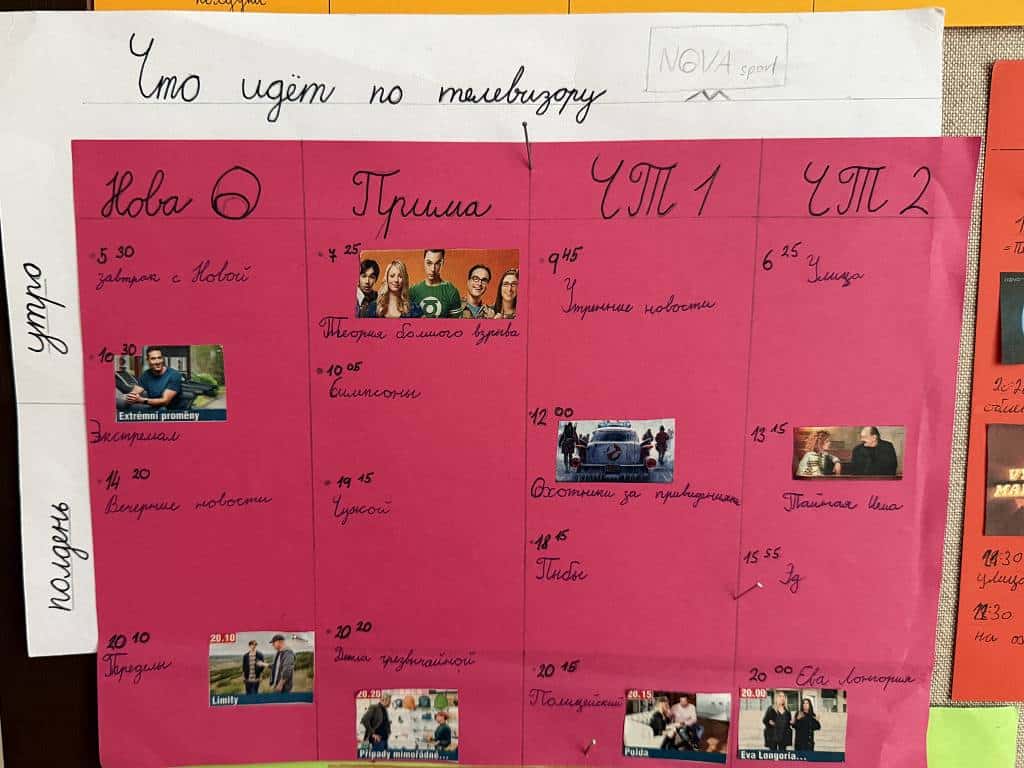 полудня
Что идёт по телевизору
NOVA sport
утро
полдень
Нова
5 30
завтрак с Новой
10 30
Extrémní proměny
Экстремал
14 20
Вечерние новости
20 10
Переделы
20.10
Limity
Прима
7 25
Теория болшого взрыва
10 05
Симпсоны
19 15
Чужой
20 20
Дела чрезвычайной
20.20
Případy mimořádné...
ЧТ 1
9 45
Утренние новости
12 00
Охотники за привидниями
18 15
20 15
Полицейский
20.15
Polda
ЧТ 2
6 25
Улица
13 15
Тайная цена
15 55
Эд
20 00 Ева Лонгория
20.00
Eva Longoria...